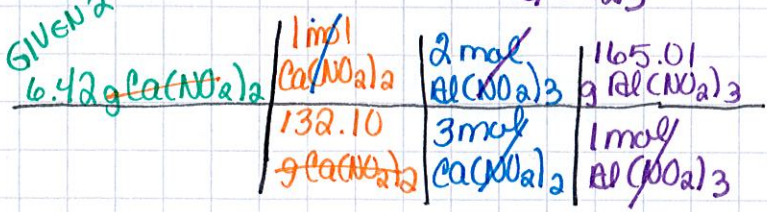 GIVEN 2
6.42 g Ca(NO2)2 | 1 mol Ca(NO2)2 | 2 mol Al(NO2)3 | 165.01 g Al(NO2)3
132.10 g Ca(NO2)2 | 3 mol Ca(NO2)2 | 1 mol Al(NO2)3